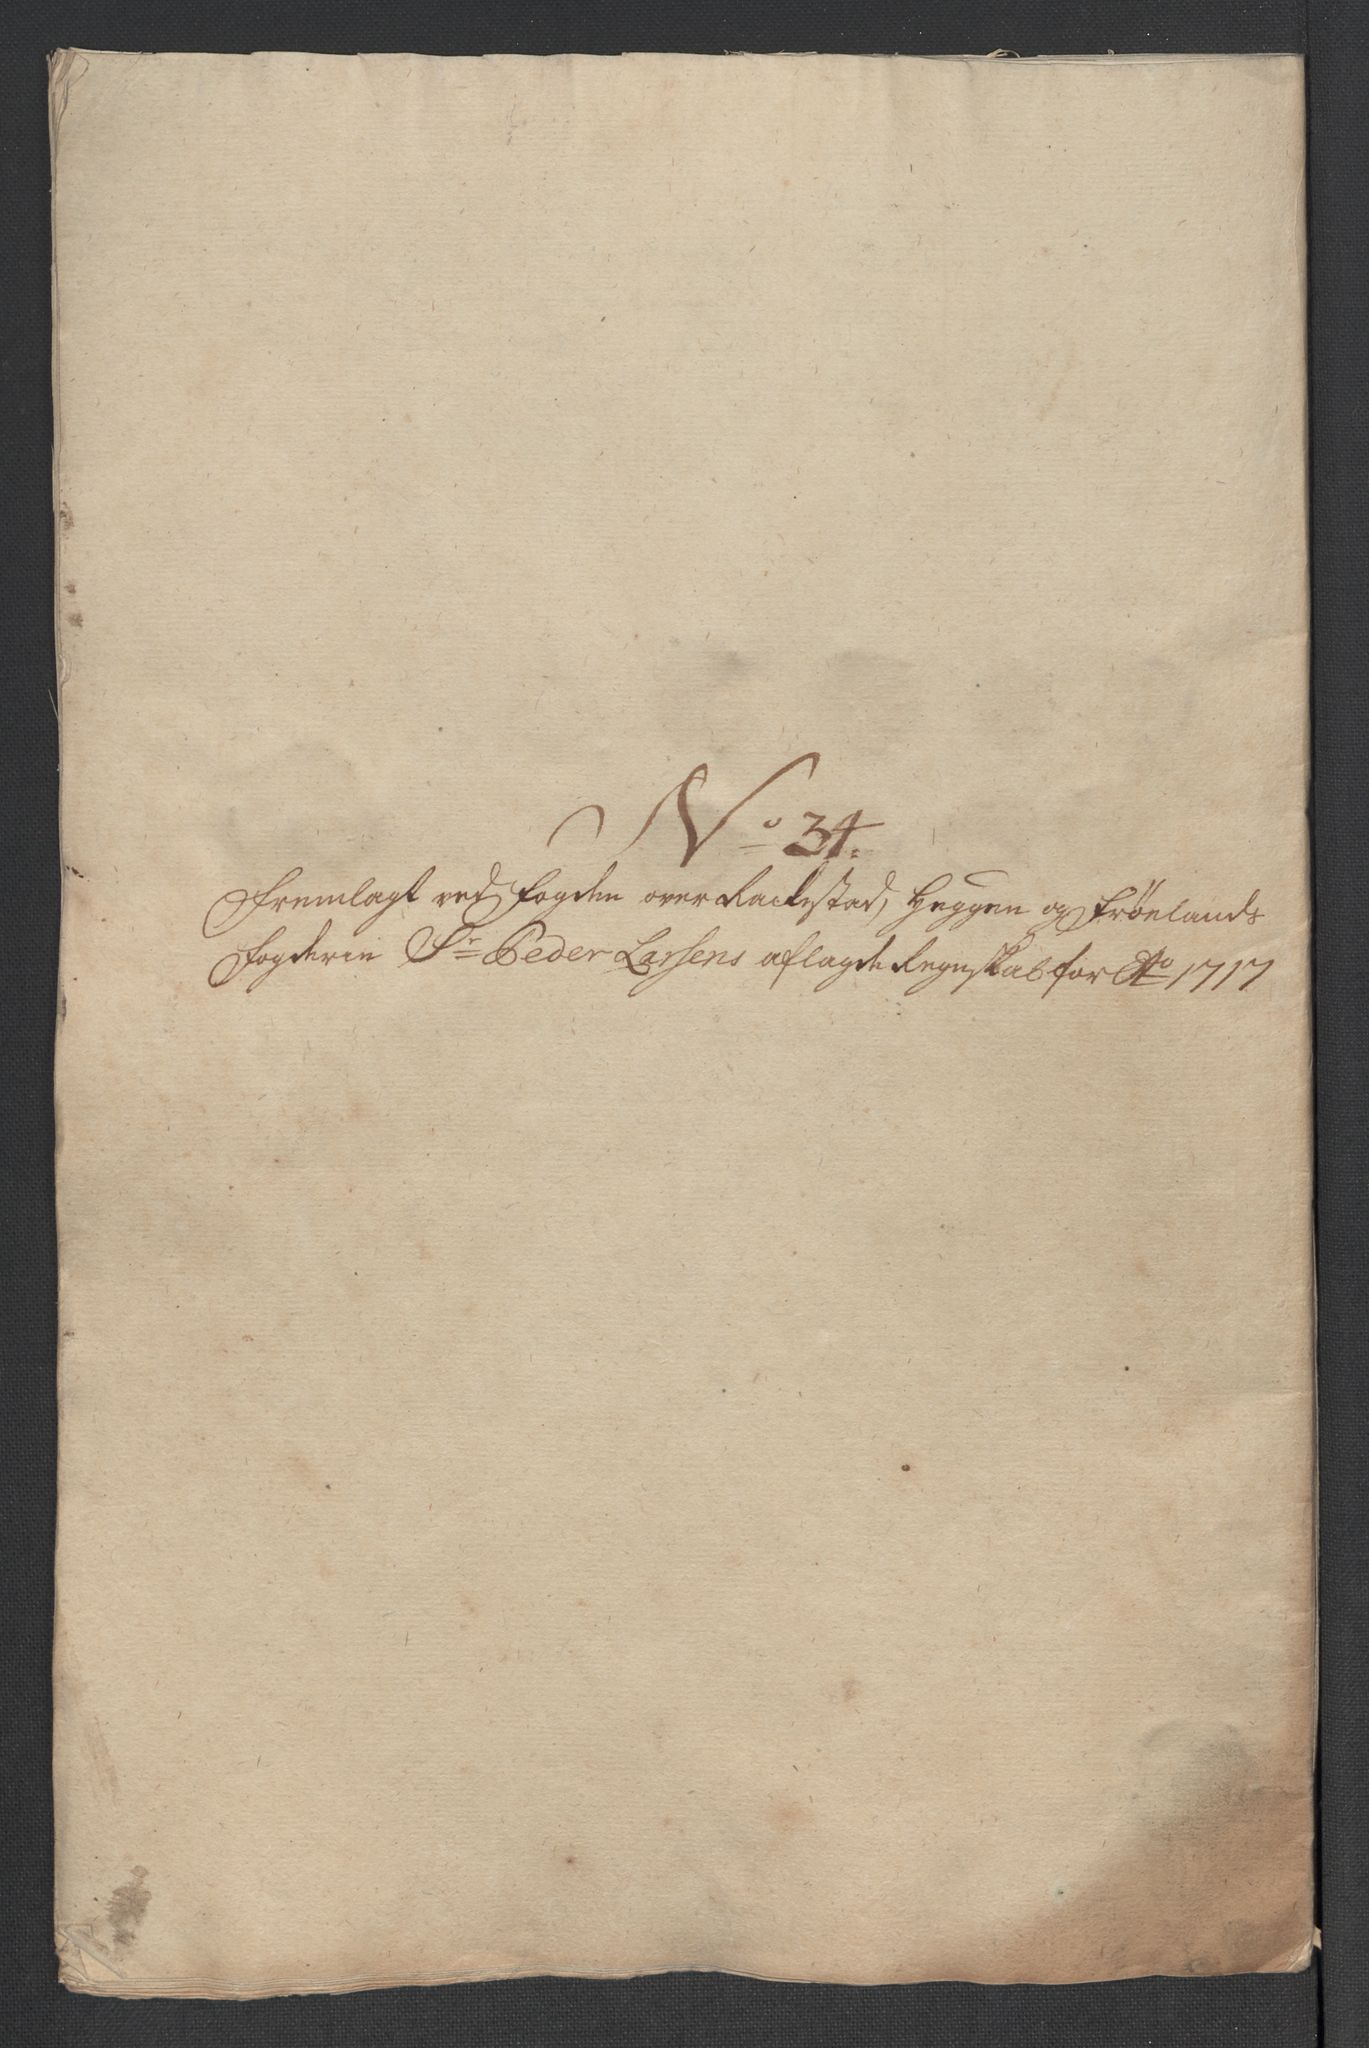 No 34.
Fremlagt ved Fogden over Rackestad, Heggen og Frøelands
Fogderie Sr Peder Larsens aflagde Regnskab for Ao 1717